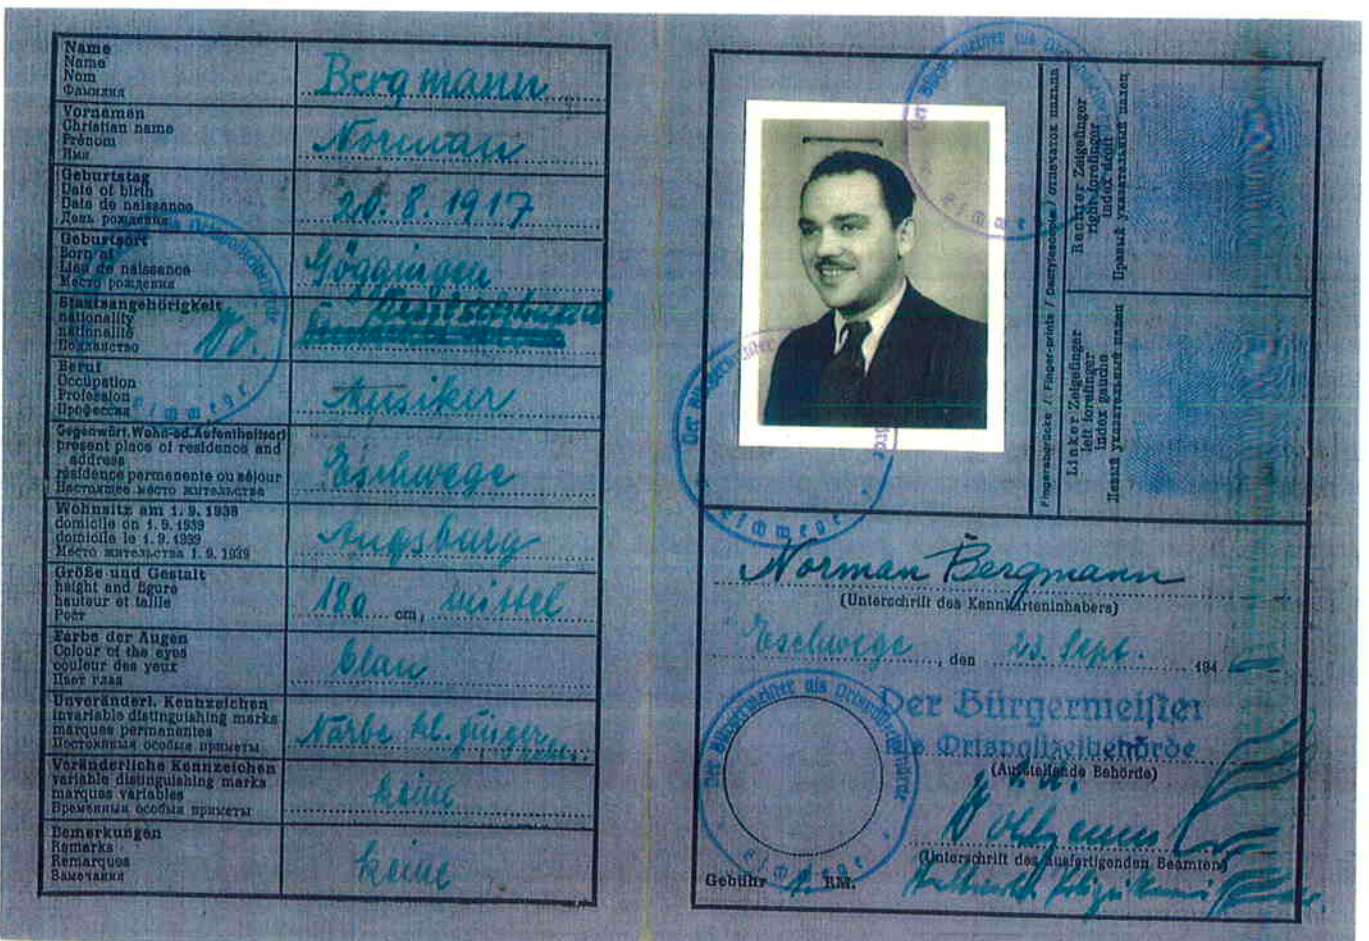 Name
Name
Nom
Фамилия
Bergmann
Vornamen
Christian name
Prénom
Имя
Norman
Geburtstag
Date of birth
Date de naissance
День рождения
20. 8. 1917
Geburtsort
Born at
Lieu de naissance
Место рождения
Göggingen
Staatsangehörigkeit
nationality
nationalité
Подданство
Deutschland
Beruf
Occupation
Profession
Профессия
Musiker
Gegenwärt. Wohn-od. Aufenthaltsort
present place of residence and
address
résidence permanente ou séjour
Настоящее место жительства
Eschwege
Wohnsitz am 1. 9. 1939
domicile on 1. 9. 1939
domicile le 1. 9. 1939
Место жительства 1. 9. 1939
Augsburg
Größe und Gestalt
height and figure
hauteur et taille
Рост
180 cm, mittel
Farbe der Augen
Colour of the eyes
couleur des yeux
Цвет глаз
blau
Unveränderl. Kennzeichen
invariable distinguishing marks
marques permanentes
Постоянныя особыя приметы
Narbe kl. Finger
Veränderliche Kennzeichen
variable distinguishing marks
marques variables
Временныя особыя приметы
keine
Bemerkungen
Remarks
Remarques
Замечания
keine
Fingerabdrücke / Finger-prints / Dactyloscopie / отпечаток пальца
Rechter Zeigefinger
right forefinger
index droit
Правый указательный палец
Linker Zeigefinger
left forefinger
index gauche
Левый указательный палец
Norman Bergmann
(Unterschrift des Kennkarteninhabers)
Eschwege, den 23. Sept. 194
Der Bürgermeister als Ortspolizeibehörde
Eschwege
Der Bürgermeister
als Ortspolizeibehörde
(Ausstellende Behörde)
(Unterschrift des ausfertigenden Beamten)
Gebühr RM.